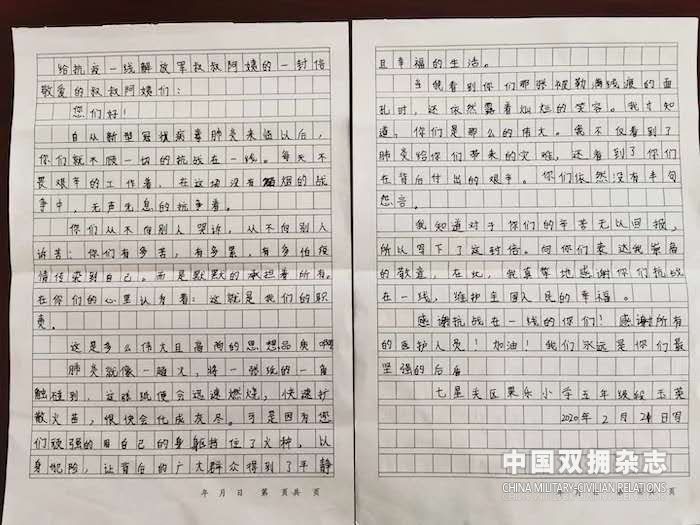 给抗疫一线解放军叔叔阿姨的一封信
敬爱的叔叔阿姨们：
您们好！
自从新型冠状病毒肺炎来临以后，
你们就不顾一切的抗战在一线。每天不
畏艰辛的工作着，在这场没有硝烟的战
争中，无声无息的抗争着。
你们从不向别人哭诉，从不向别人
诉苦：你们有多苦，有多累，有多怕疫
情传染到自己。而是默默的承担着所有。
在你们的心里认为着：这就是我们的职
责。
这是多么伟大且高尚的思想品质啊
肺炎就像一媳火，将一张纸的一角
触碰到，这张纸便会迅速燃烧，快速扩
散火苗，很快会化成灰尽。可是因有您
们顽强的用自己的身躯挡住了火种，以
身犯险，让背后的广大群众得到了平静
年 月 日 第 页共 页
且幸福的生活。
当我看到你们那张被勒满线痕的面
孔时，还依然露着灿烂的笑容。我才知
道，你们是那么的伟大。我不仅看到了
肺炎给你们带来的灾难，还看到了你们
在背后付出的艰辛。你们依然没有半句
怨言。
我知道对于你们的辛苦无以回报，
所以写下了这封信。向你们表达我崇高
的敬意，在此，我真挚地感谢你们抗战
在一线，维护全国人民的幸福。
感谢抗战在一线的你们！感谢所有
的医护人员！加油！我们永远是你们最
坚强的后盾
七星关区果乐小学五年级段玉英
2020年2月24日写
中国双拥杂志
CHINA MILITARY-CIVILIAN RELATIONS